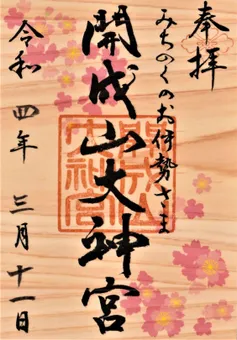 奉拝
みちのくのお伊勢さま
開成山大神宮
令和四年三月十一日
開成山大神宮